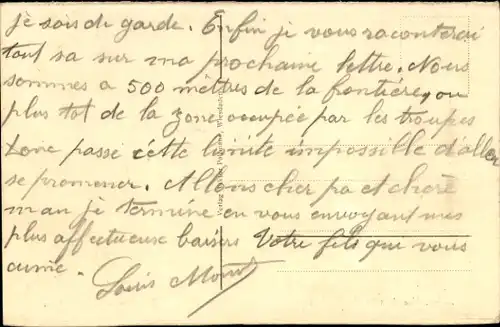 je sois de garde. Enfin je vous raconterai
tout sa sur ma prochaine lettre. Nous
sommes a 500 mètres de la frontière, ou
plus tot de la zone occupée par les troupes
Donc passé cette limite impossible d'aller
se promener. Allons cher pa et chère
man je termine en vous envoyant mes
plus affectueuse baisers Votre fils qui vous
aime. Louis
Verlag Wiesbaden